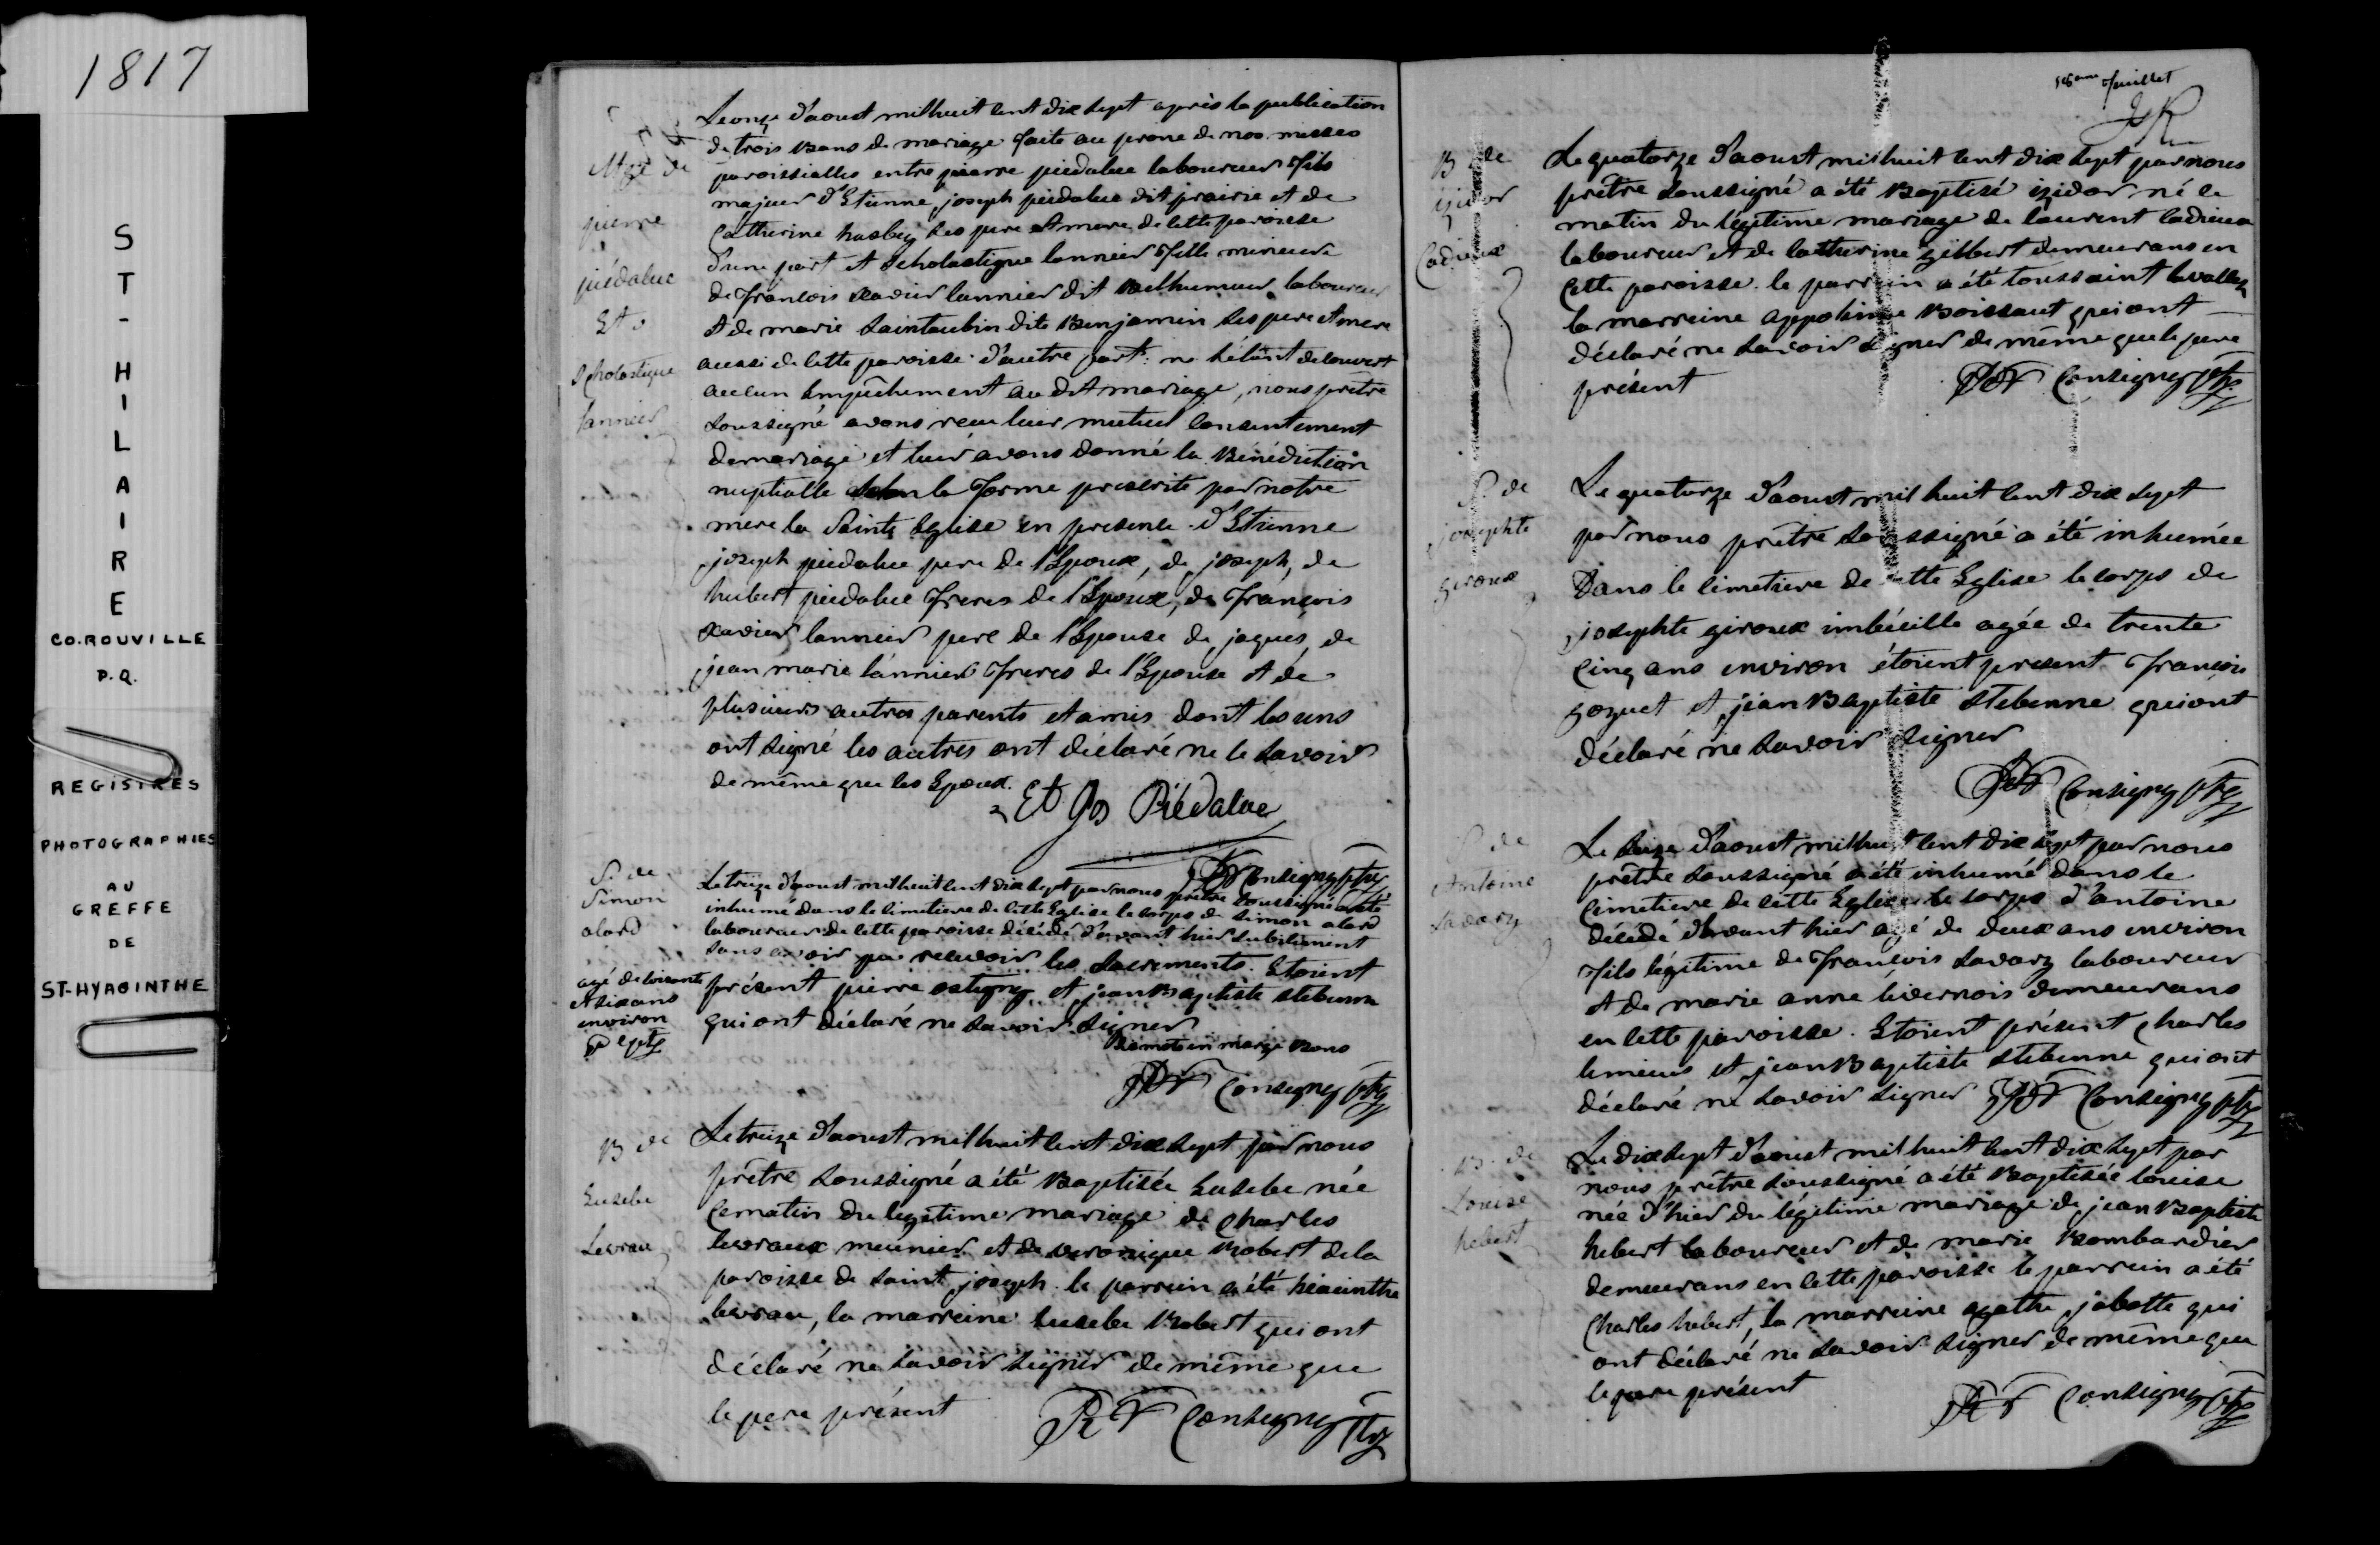 1817
ST-HILAIRE
CO. ROUVILLE
P.Q.
REGISTRES
PHOTOGRAPHIES
AU
GREFFE
DE
ST-HYACINTHE
Mge de
pierre
piédalue
Et
Scholastique
lannier
Le onze d'aoust mil huit cent dix sept après la publication
de trois Bans de mariage faite au prone de nos messes
paroissialles entre pierre piedalue laboureur fils
majeur d'Etienne joseph piedalue dit prairie et de
Catherine ses pere et mere de cette paroisse
d'une part et Scholastique lannier fille mineure
de francois xavier lannier dit Belhumeur laboureur
et de marie saintaubin dite Benjamin ses pere et mere
aussi de cette paroisse d'autre part: ne s'étant decouvert
aucun empêchement au dit mariage, nous prêtre
soussigné avons reçu leur mutuel consentement
de mariage et leur avons donné la Bénédiction
nuptialle selon la forme prescrite par notre
mere la Sainte Eglise en presence d'Etienne
joseph piedalue pere de l'Epoux, de joseph, de
hubert piedalue freres de l'Epoux, de françois
xavier lannier pere de l'Epouse de jaques, de
jean marie lannier freres de l'Epouse et de
plusieurs autres parents et amis dont les uns
ont signé les autres ont déclaré ne le savoir
de même que les Epoux.
Et Jos Piédalue
Consigny ptre
S. de
Simon
alard
agé de
et six ans
environ
Le treize d'aoust mil huit cent dix sept par nous prêtre soussigné a été
inhumé dans le cimetiere de cette Eglise le corps de Simon alard
laboureur de cette paroisse décédé d'avant hier subitement
sans avoir pu recevoir les sacrements. Etoient
présent pierre ostigny et jean Baptiste stebenne
qui ont déclaré ne savoir signer
mots en marge Bons
Consigny ptre
B de
Eusebe
Levrau
Le treize d'aoust mil huit cent dix sept par nous
prêtre soussigné a été Baptisée Eusebe née
ce matin du legitime mariage de Charles
levraux meunier et de veronique Robert de la
paroisse de saint joseph. le parrein a été hiacinthe
levrau, la marreine Eusebe Robert qui ont
déclaré ne savoir signer de même que
le pere présent
Consigny ptre
feuillet
B de
izidor
Cadieux
Le quatorze d'aoust mil huit cent dix sept par nous
prêtre soussigné a été Baptisé izidor né ce
matin du légitime mariage de laurent Cadieux
laboureur et de Catherine gilbert demeurans en
cette paroisse. le parrein a été toussaint lavallee
la marreine Boissaut qui ont
déclaré ne savoir signer de même que le pere
présent
Consigny ptre
S. de
josephte
giroux
Le quatorze d'aoust mil huit cent dix sept
par nous prêtre soussigné a été inhumée
Dans le cimetiere de cette Eglise le corps de
josephte giroux imbécille agée de trente
cinq ans environ étoient present françois
goguet et jean Baptiste stebenne qui ont
déclaré ne savoir signer
Consigny ptre
S de
Antoine
savary
Le seize d'aoust mil huit cent dix sept par nous
prêtre soussigné a été inhumé dans le
Cimetiere de cette Eglise le corps d'antoine
décédé d'avant hier agé de deux ans environ
fils légitime de françois savary laboureur
et de marie anne livernois demeurans
en cette paroisse. Etoient présent Charles
lemieux et jean Baptiste stebenne qui ont
déclaré ne savoir signer Consigny ptre
B. de
Louise
hebert
Le dix sept d'aoust mil huit cent dix sept par
nous prêtre soussigné a été Baptisée louise
née d'hier du légitime mariage de jean Baptiste
hebert laboureur et de marie Bombardier
demeurans en cette paroisse le parrein a été
Charles hebert, la marreine agathe jabotte qui
ont déclaré ne savoir signer de même que
le pere présent
Consigny ptre